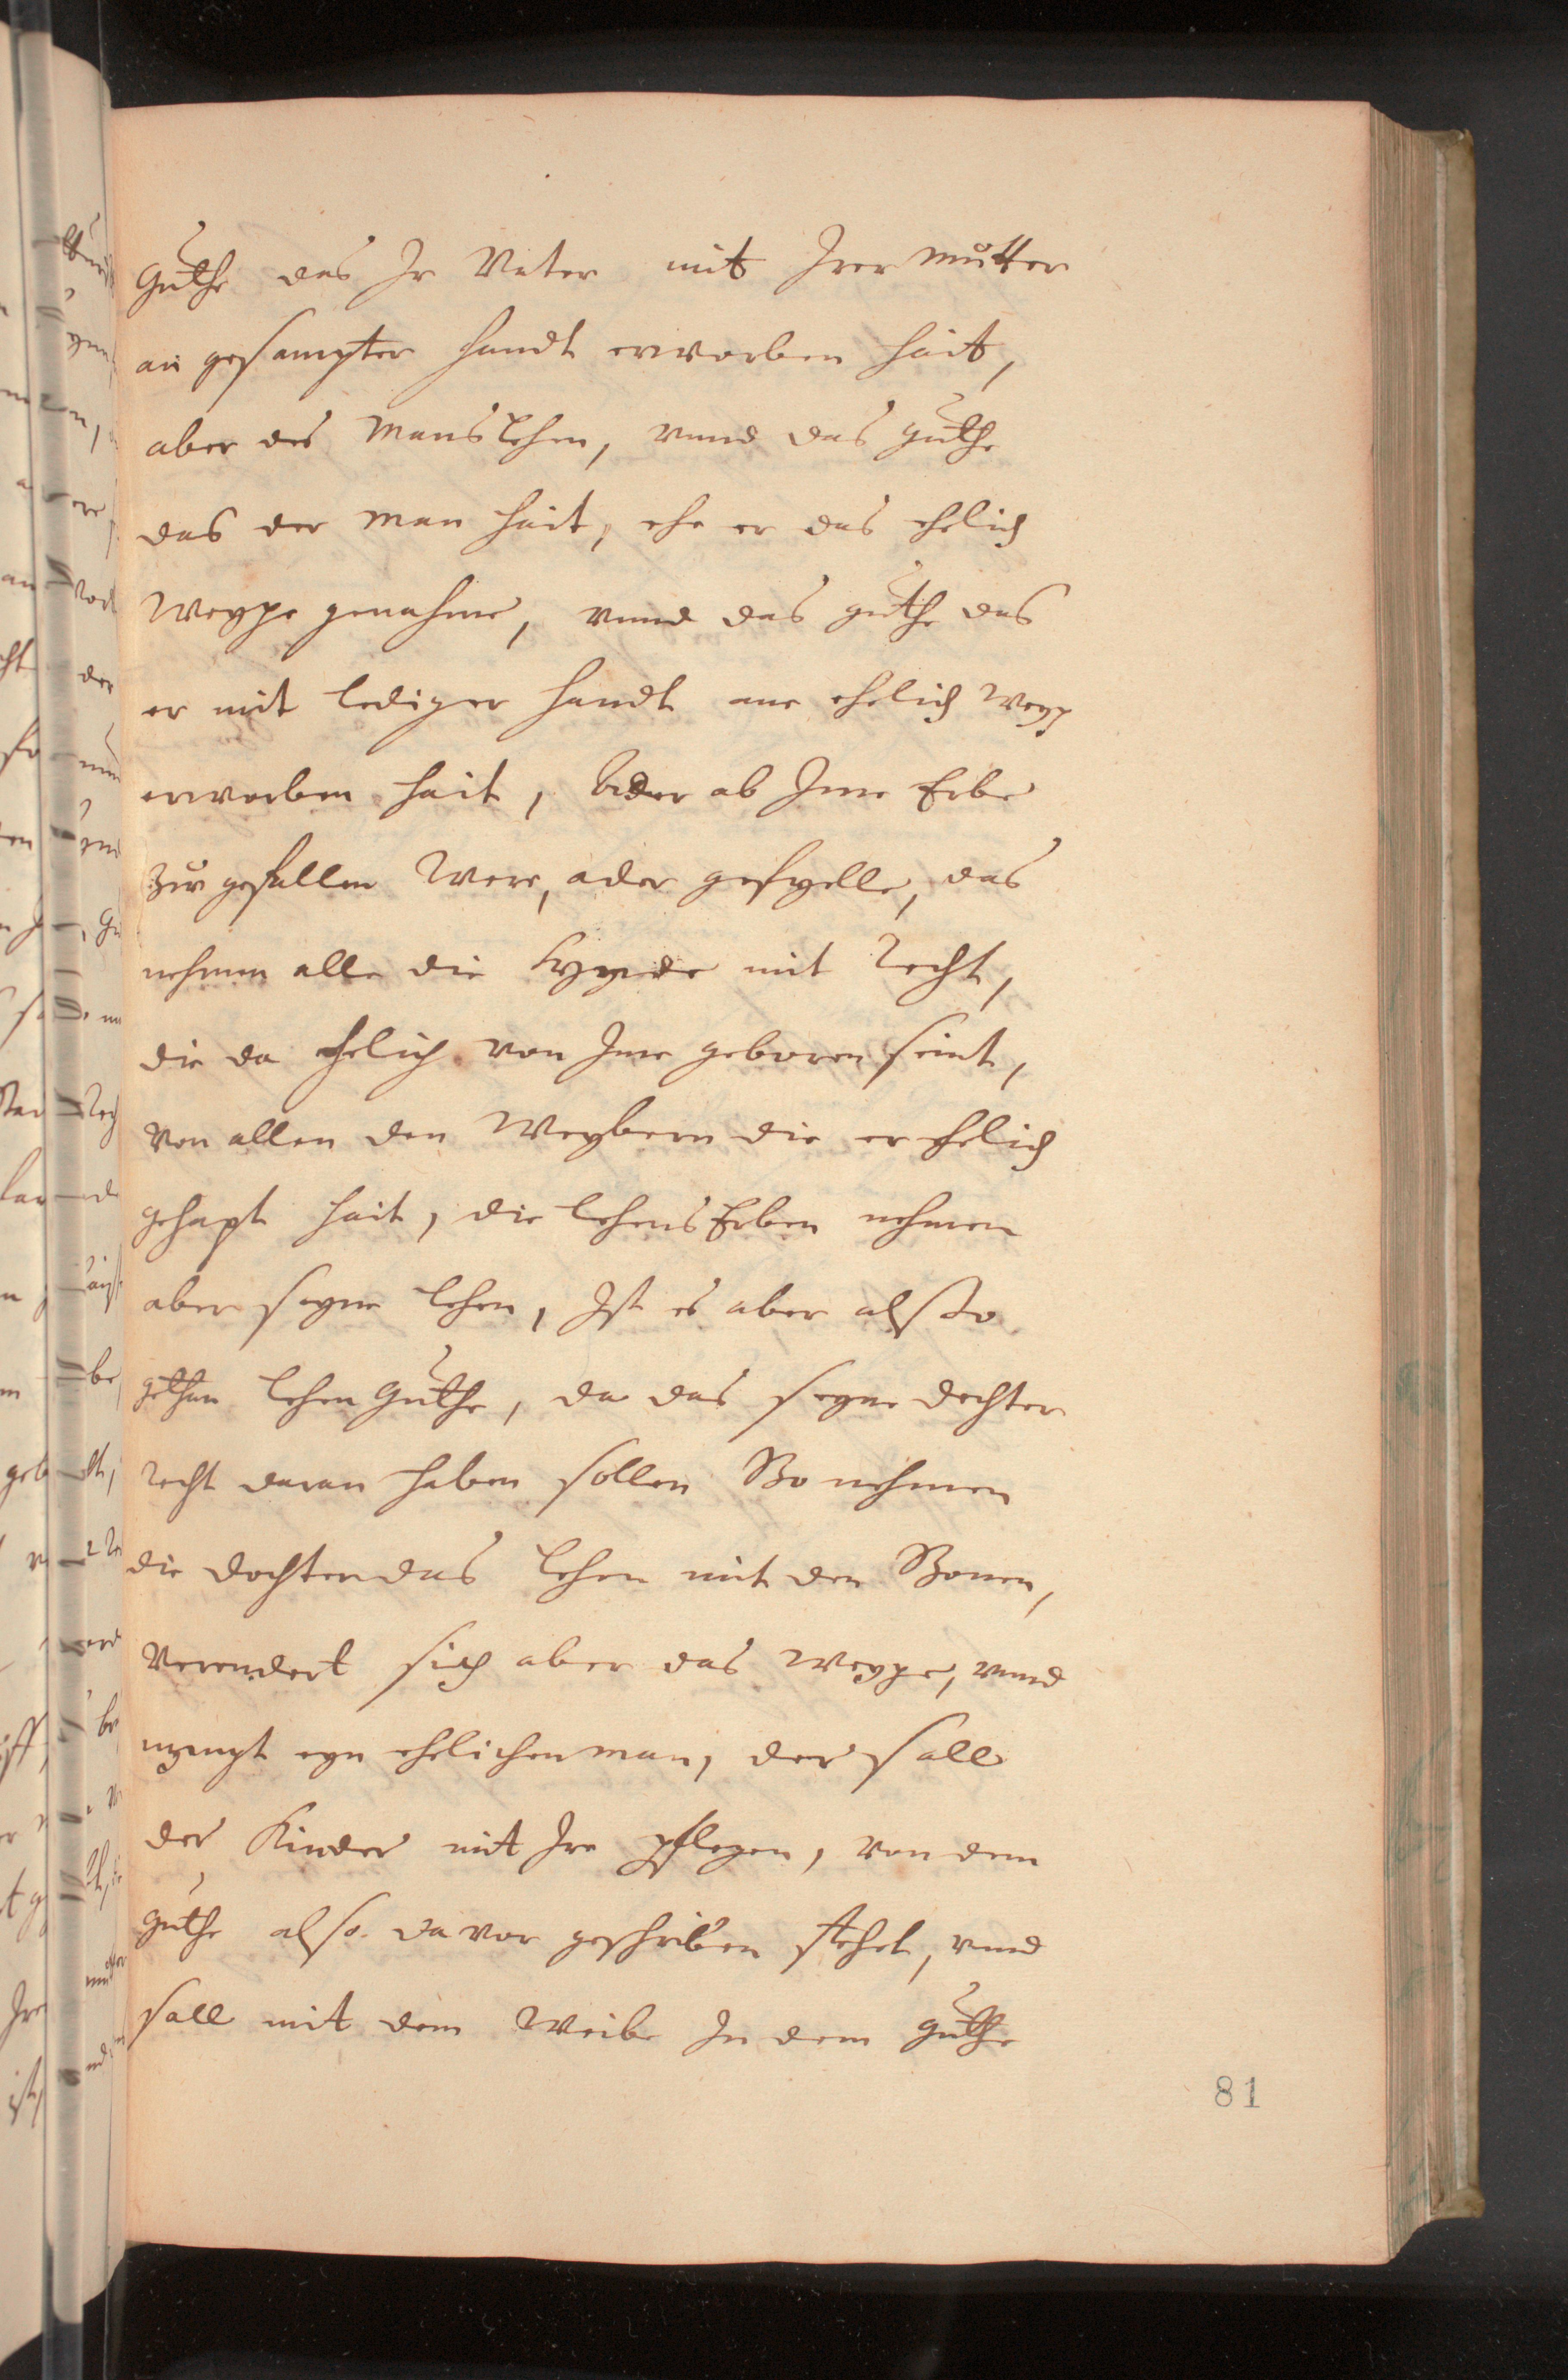 guthe das Jr Vater mit Jrer mutter
an gesampter handt erworben hait,
aber des Manslehen, vnnd das guthe
das der man hait, ehe er das ehelich
Weype genahme, vnnd das guthe das
er mit lediger handt ane ehelich weyp
erworben hait, Ader ab Jme Erbe
zur gefallen were, ader gefyelle, das
nehmen alle die Kynde mit Recht,
die da ehelich von Jme geboren seint,
von allen den Weybern die er ehelich
gehapt hait, die lehens Erben nehmen
aber seyne lehen, Jst es aber also
gethan lehen guthe, da das seyne dochter
Recht daran haben sollen So nehmen
die dochter das lehen mit den Sonen,
Verendert sich aber das weype, vnnd
nympt eyn ehelichen man, der sall
der Kinder mit Jre pflegen, von dem
guthe also da vor geschriben stehet, vnnd
sall mit dem Weibe Jn dem guthe
81